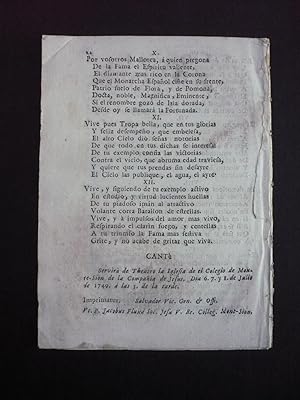 X.
Por vosotros Mallorca, á quien pregona
De la Fama el Espiritu valiente,
El diamante mas rico en la Corona
Que el Monarcha Español ciñe en su frente:
Patrio suelo de Flora, y de Pomona,
Docta, noble, Magnifica, Eminente;
Si el renombre gozó de Isla dorada,
Desde oy se llamará la Fortunada.
XI.
Vive pues Tropa bella, que en tus glorias
Y feliz desempeño, que embelesa,
El alto Cielo dió señas notorias
De que todo en tus dichas se interessa
De tu exemplo confia las victorias
Contra el vicio, que abruma edad traviesa,
Y quiere que tus prendas sin desayre
El Cielo las publique, el agua, el ayre.
XII.
Vive, y siguiendo de tu exemplo activo
En estudio, y virtud lucientes huellas
De tu piadoso imán al atractivo
Volante corra Batallon de estrellas.
Vive, y á impulsos del amor mas vivo,
Respirando el clarin fuego, y centellas
A tu triunfo la Fama mas festiva
Grite, y no acabe de gritar que viva.
CANTÓ
Servira de Theatro la Iglesia de el Colegio de Mon-
te-Sion de la Compañia de Jesus. Dia 6. 7. y 8. de Julio
de 1749. á las 3. de la tarde.
Imprimatur, Salvador Vic. Gen. & Offi.
Vt. P. Jacobus Soc. Jesu V. Re. Colleg. Mont-Sion.